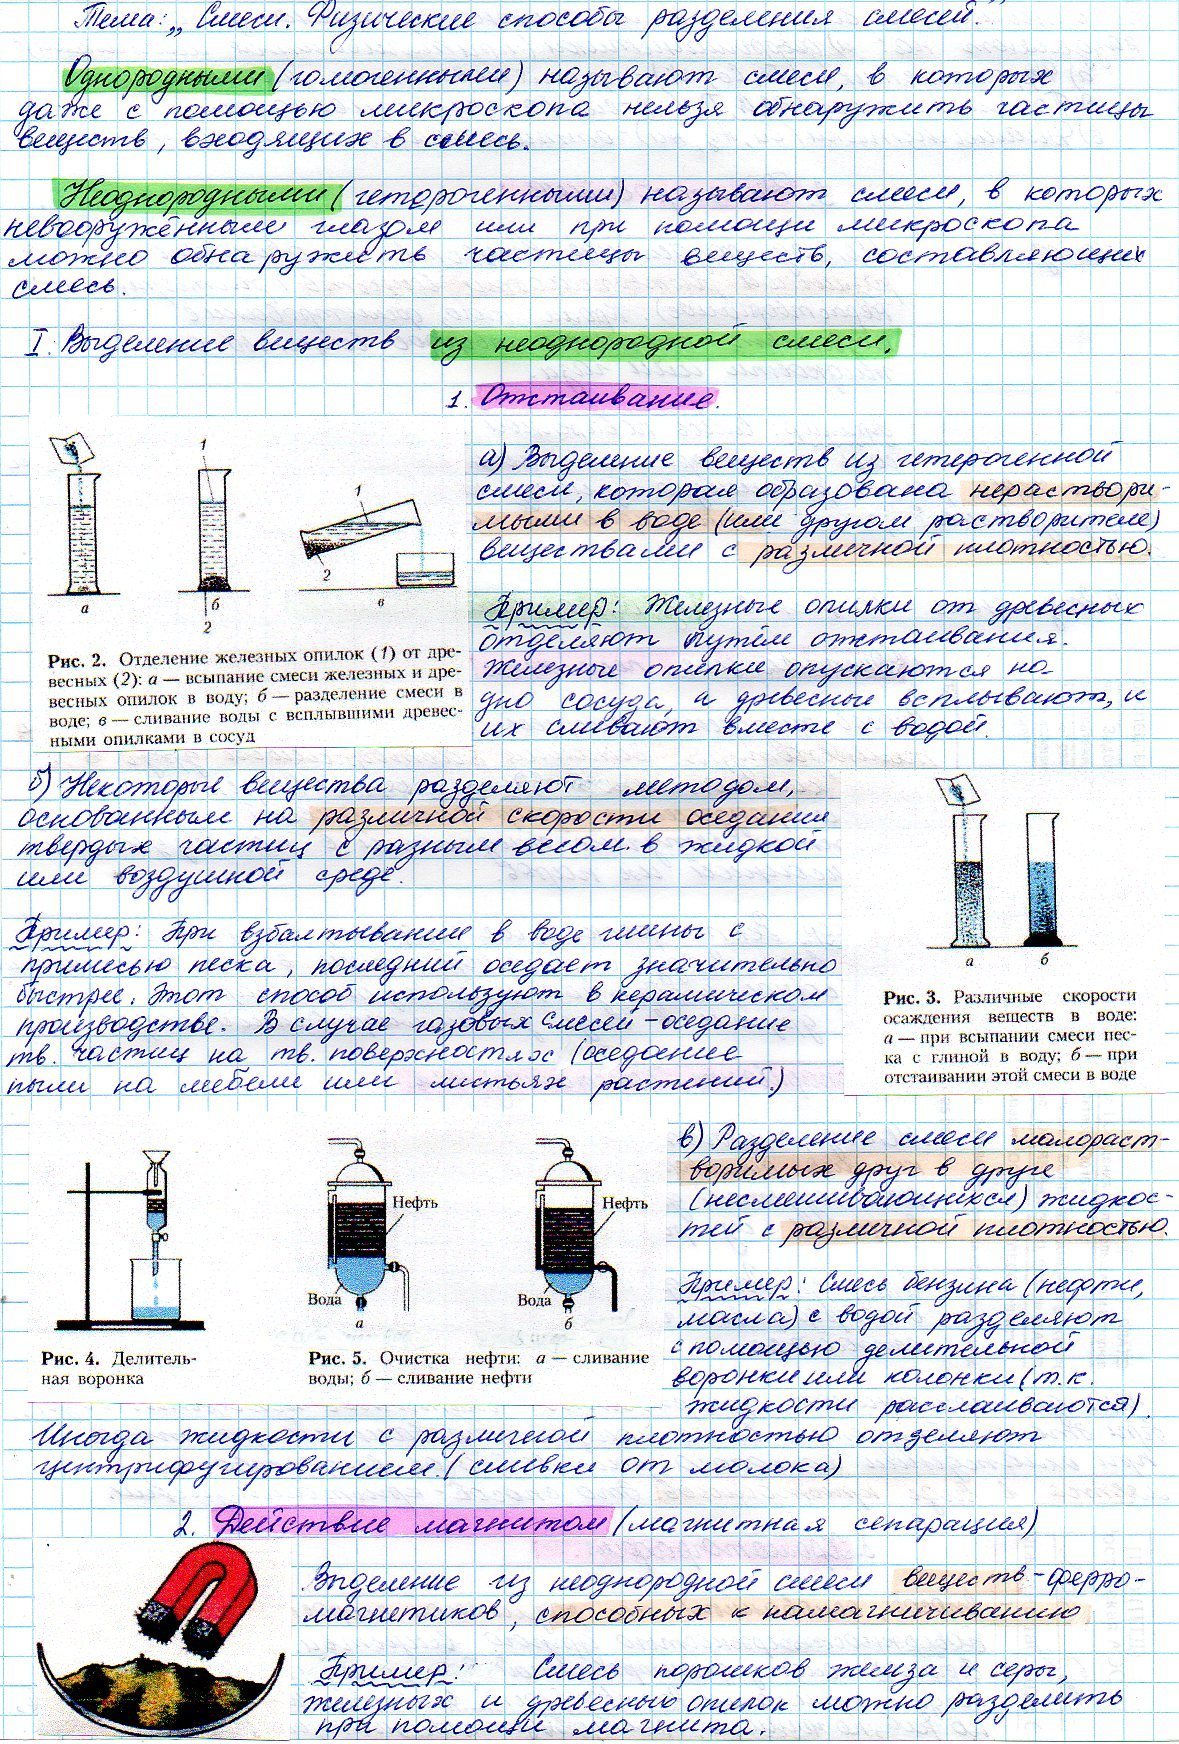 Тема: „Смеси. Физические способы разделения смесей."
Однородными (гомогенными) называют смеси, в которых
даже с помощью микроскопа нельзя обнаружить частицы
веществ, входящих в смесь.
Неоднородными (гетерогенными) называют смеси, в которых
невооружённым глазом или при помощи микроскопа
можно обнаружить частицы веществ, составляющих
смесь.
I. Выделение веществ из неоднородной смеси.
1. Отстаивание.
1
1
2
а
б
в
2
Рис. 2. Отделение железных опилок (1) от дре-
весных (2): а — всыпание смеси железных и дре-
весных опилок в воду; б — разделение смеси в
воде; в — сливание воды с всплывшими древес-
ными опилками в сосуд
а) Выделение веществ из гетерогенной
смеси, которая образована нераствори-
мыми в воде (или другом растворителе)
веществами с различной плотностью.
Пример: Железные опилки от древесных
отделяют путём отстаивания.
Железные опилки опускаются на
дно сосуда, а древесные всплывают, и
их сливают вместе с водой.
б) Некоторые вещества разделяют методом,
основанным на различной скорости оседания
твердых частиц с разным весом в жидкой
или воздушной среде.
Пример: При взбалтывании в воде глины с
примесью песка, последний оседает значительно
быстрее. Этот способ используют в керамическом
производстве. В случае газовых смесей - оседание
тв. частиц на тв. поверхностях (оседание
пыли на мебели или листьях растений.)
а
б
Рис. 3. Различные скорости
осаждения веществ в воде:
а — при всыпании смеси пес-
ка с глиной в воду; б — при
отстаивании этой смеси в воде
Рис. 4. Делитель-
ная воронка
Нефть
Вода
а
Нефть
Вода
б
Рис. 5. Очистка нефти: а — сливание
воды; б — сливание нефти
в) Разделение смеси малораст-
воримых друг в друге
(несмешивающихся) жидкос-
тей с различной плотностью.
Пример: Смесь бензина (нефти,
масла) с водой разделяют
с помощью делительной
воронки или колонки (т.к.
жидкости расслаиваются).
Иногда жидкости с различной плотностью отделяют
центрифугированием. (сливки от молока)
2. Действие магнитом (магнитная сепарация)
Выделение из неоднородной смеси веществ-ферро-
магнетиков, способных к намагничиванию
Пример: Смесь порошков железа и серы,
железных и древесных опилок можно разделить
при помощи магнита.